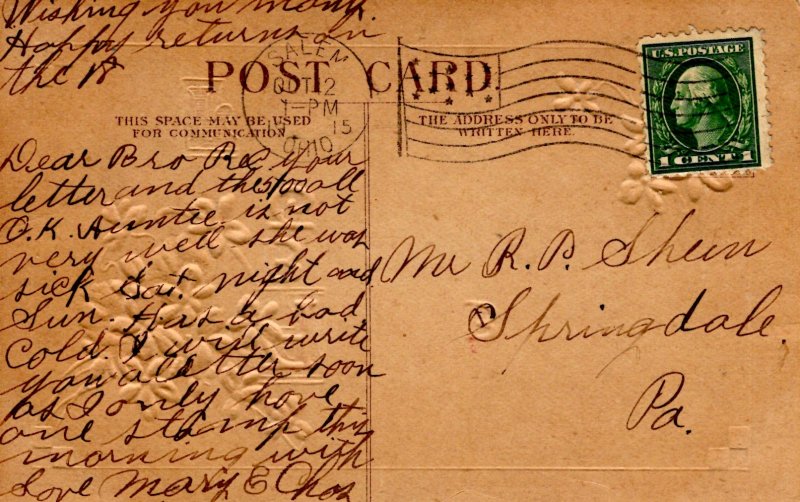 Wishing you many
Happy returns on
the 18
POST CARD.
SALEM
OCT 12
1-PM
15
OHIO
U.S. POSTAGE
1 CENT 1
THIS SPACE MAY BE USED
FOR COMMUNICATION
THE ADDRESS ONLY TO BE
WRITTEN HERE.
Dear Bro Rec your
letter and the 5/00 all
O.K. Auntie is not
very well she was
sick Sat. night and
Sun. Has a bad
Cold. I will write
you a letter soon
as I only have
one stamp this
morning with
Love Mary E Chas
Mr R. P. Shein
Springdale.
Pa.